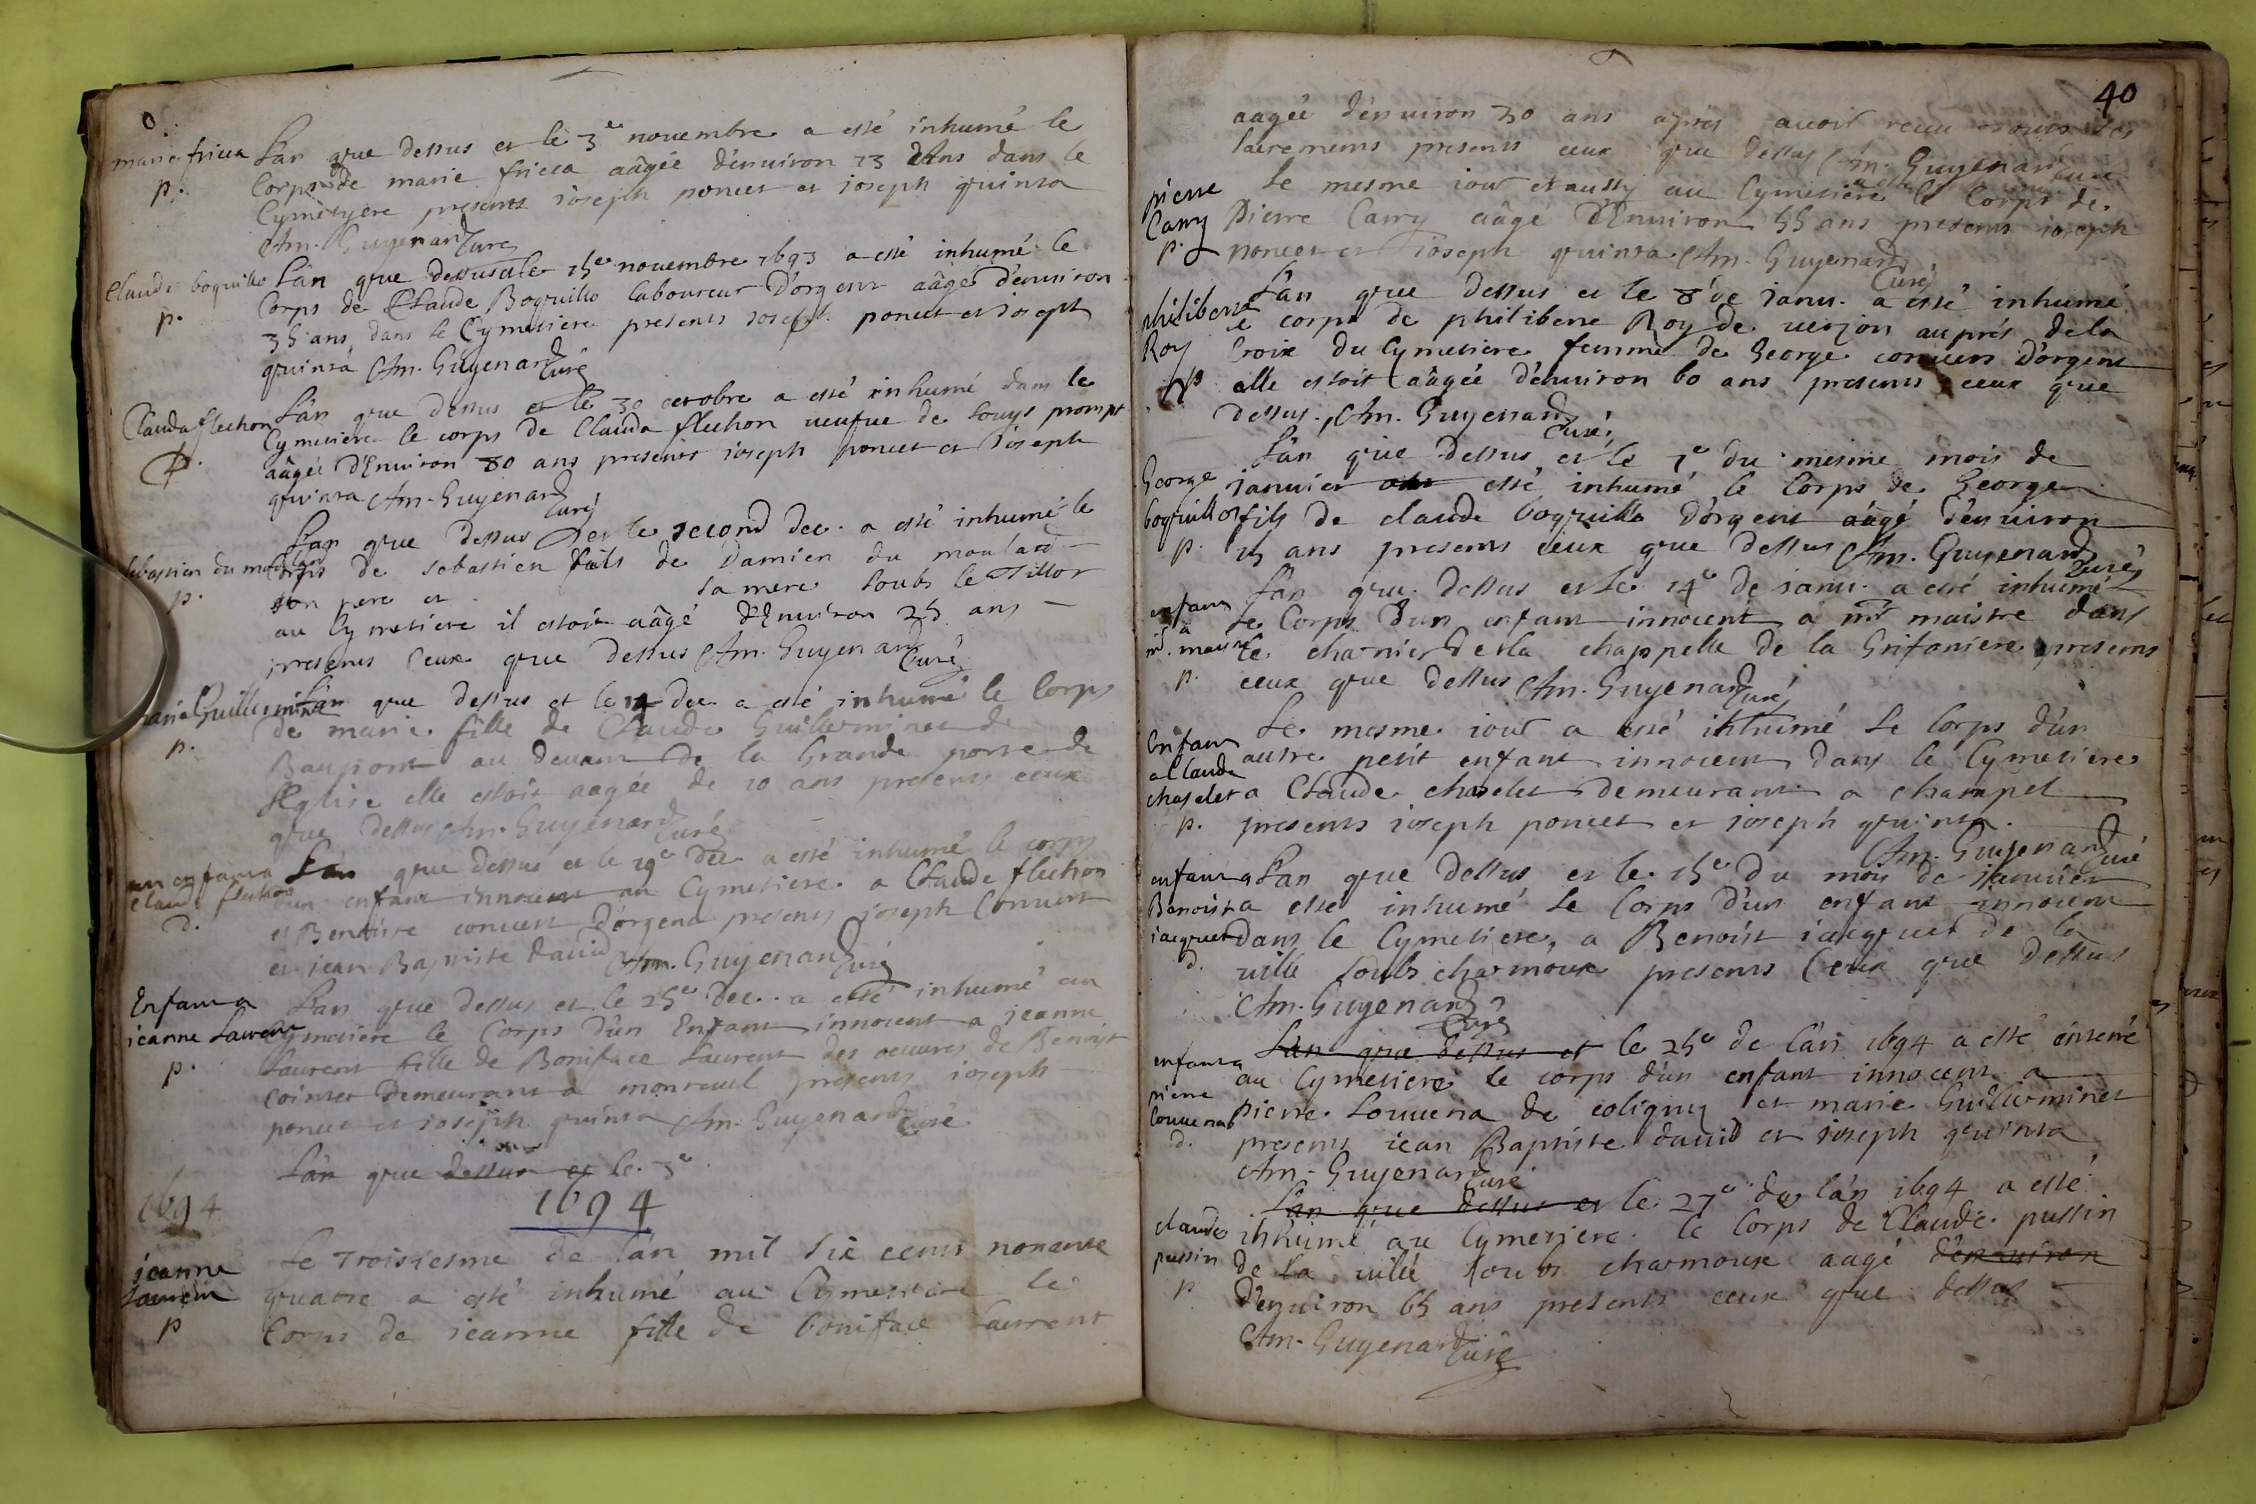 marie fricca
p.
L'an que dessus et le 3e novembre a esté inhumé le
Corps de marie fricca aâgée d'enuiron 23 Ans dans le
Cymetyere presents ioseph poncet et ioseph quinsa
Am. Guyenard Curé
Claude boquillo
p.
L'an que dessus et le 15e novembre 1693 a esté inhumé le
Corps de Claude Boquillo laboureur d'orgent aâgé d'enuiron
35 ans, dans le Cymetiere presents ioseph poncet et ioseph
quinsa Am. Guyenard Curé
Clauda flechon
p.
L'an que dessus et le 30 octobre a esté inhumé dans le
Cymetiere le corps de Clauda flechon veufue de Louys prompt
aâgée d'Enuiron 80 ans presents ioseph poncet et ioseph
quinsa Am. Guyenard Curé
sebastien du moulard
p.
L'an que dessus et le second dec. a esté inhumé le
Corps de sebastien fils de Damien du moulard
son pere et sa mere soubs le Tillot
au Cymetiere il estoit aâgé d'Enuiron 25 ans
presents Ceux que dessus Am. Guyenard Curé
marie Guillerminet
p.
L'an que dessus et le 14 dec a esté inhumé le Corps
de marie fille de Claude Guillerminet de
Baupont au deuant de la Grande porte de
l'Eglise elle estoit aagée de 10 ans presents ceux
que dessus Am. Guyenard Curé
un enfant a
Claude flechon
d.
L'an que dessus et le 19e dec a esté inhumé le corps
d'un enfant innocent au Cymetiere a Claude flechon
et Benoiste conuert d'orgent presents ioseph Conuert
et iean Baptiste dauid Am. Guyenard Curé
Enfant a
ieanne Laurent
p.
L'an que dessus et le 25e dec. a esté inhumé au
Cymetiere le Corps d'un Enfant innocent a ieanne
Laurent fille de Boniface Laurent des oeuures de Benoist
Cointet demeurant a montreuil presents ioseph
poncet et ioseph quinsa Am. Guyenard Curé
L'an que dessus et le 3e
1694
1694
ieanne
Laurent
p
Le Troisiesme de l'an mil six cents nonante
quatre a esté inhumé au Cymetiere le
Corps de ieanne fille de boniface Laurent
40
aagée d'enuiron 30 ans apres auoir receu tous les
sacrements presents ceux que dessus Am. Guyenard Curé
pierre
Carry
p.
Le mesme iour et aussy au Cymetiere le Corps de
Pierre Carry aâgé d'Enuiron 55 ans presents ioseph
poncet et ioseph quinsa Am. Guyenard Curé
philiberte
Roy
p
L'an que dessus et le 8e de ianu. a esté inhumé
le corps de philiberte Roy de uerjon auprés de la
Croix du Cymetiere femme de George conuert d'orgent
elle estoit aâgée d'enuiron 60 ans presents ceux que
dessus. Am. Guyenard Curé
George
boquillo
p.
L'an que dessus et le 7e du mesme mois de
ianuier esté inhumé le Corps de George
fils de claude boquillo d'orgent aagé d'enuiron
15 ans presents ceux que dessus Am. Guyenard Curé
enfant
a
mr. maistre
p.
L'an que dessus et le 14e de ianu. a esté inhumé
le Corps d'un enfant innocent a mr maistre dans
le charnier de la chappelle de la Grifoniere presents
ceux que dessus Am. Guyenard Curé
Enfant
a Claude
chaselet
p.
Le mesme iour a esté inhumé le Corps d'un
autre petit enfant innocent dans le Cymetiere
a Claude chaselet demeurant a champel
presents ioseph poncet et ioseph quinsa.
Am. Guyenard Curé
enfant a
Benoist
iacquet
d.
L'an que dessus et le 15e du mois de ianuier
a esté inhumé le Corps d'un enfant innocent
dans le Cymetiere, a Benoist iacquet de la
uille soubs charmoux presents Ceux que dessus
Am. Guyenard Curé
enfant a
pierre
Louuena
d.
L'an que dessus et le 25e de l'an 1694 a esté enterré
au Cymetiere le corps d'un enfant innocent a
pierre Louuena de coligny et marie Guillerminet
presents iean Baptiste dauid et ioseph quinsa
Am. Guyenard Curé
claude
pussin
p
L'an que dessus et le 27e de l'an 1694 a esté
inhumé au Cymetiere le Corps de Claude pussin
de la uille soubs charmoux aagé d'enuiron
d'enuiron 65 ans presents ceux que dessus
Am. Guyenard Curé